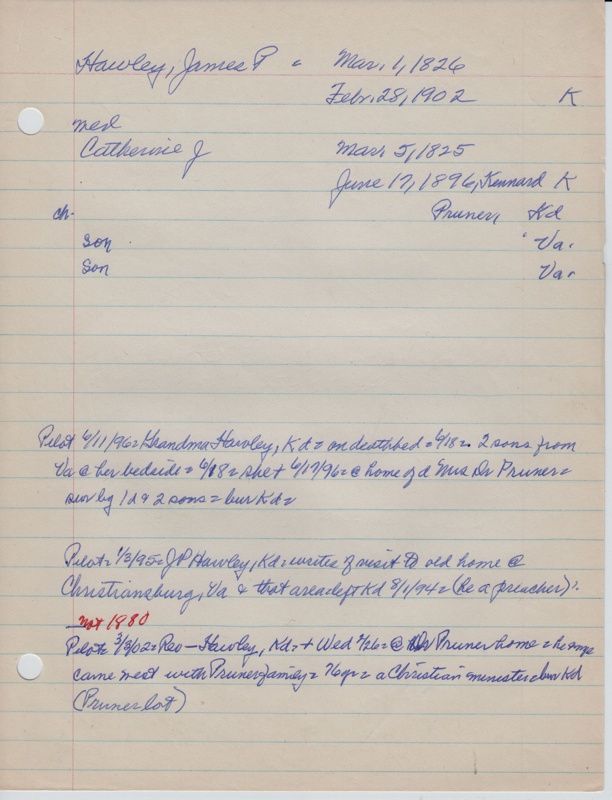 Hawley, James P = Mar. 1, 1826
Febr. 28, 1902 K
med
Catherine J Mar. 5, 1825
June 17, 1896, Kennard K
ch. Pruner, Kd
son Va.
son Va.
Pilot 6/11/96 = Grandma Hawley, Kd = on deathbed = 6/18 = 2 sons from
Va @ her bedside = 6/18 = she + 6/17/96 = @ home of d Mrs Dr Pruner =
surv by 1 d & 2 sons = bur Kd =
Pilot = 1/3/95 = J P Hawley, Kd = writes of visit to old home @
Christiansburg, Va & that area left Kd 8/1/94 = (he a preacher) =
not 1880
Pilot = 3/3/02 = Rev — Hawley, Kd = + Wed 2/26 = @ Dr Pruner home = he
came west with Pruner family = 76 yr = a Christian minister = bur Kd
(Pruner lot)